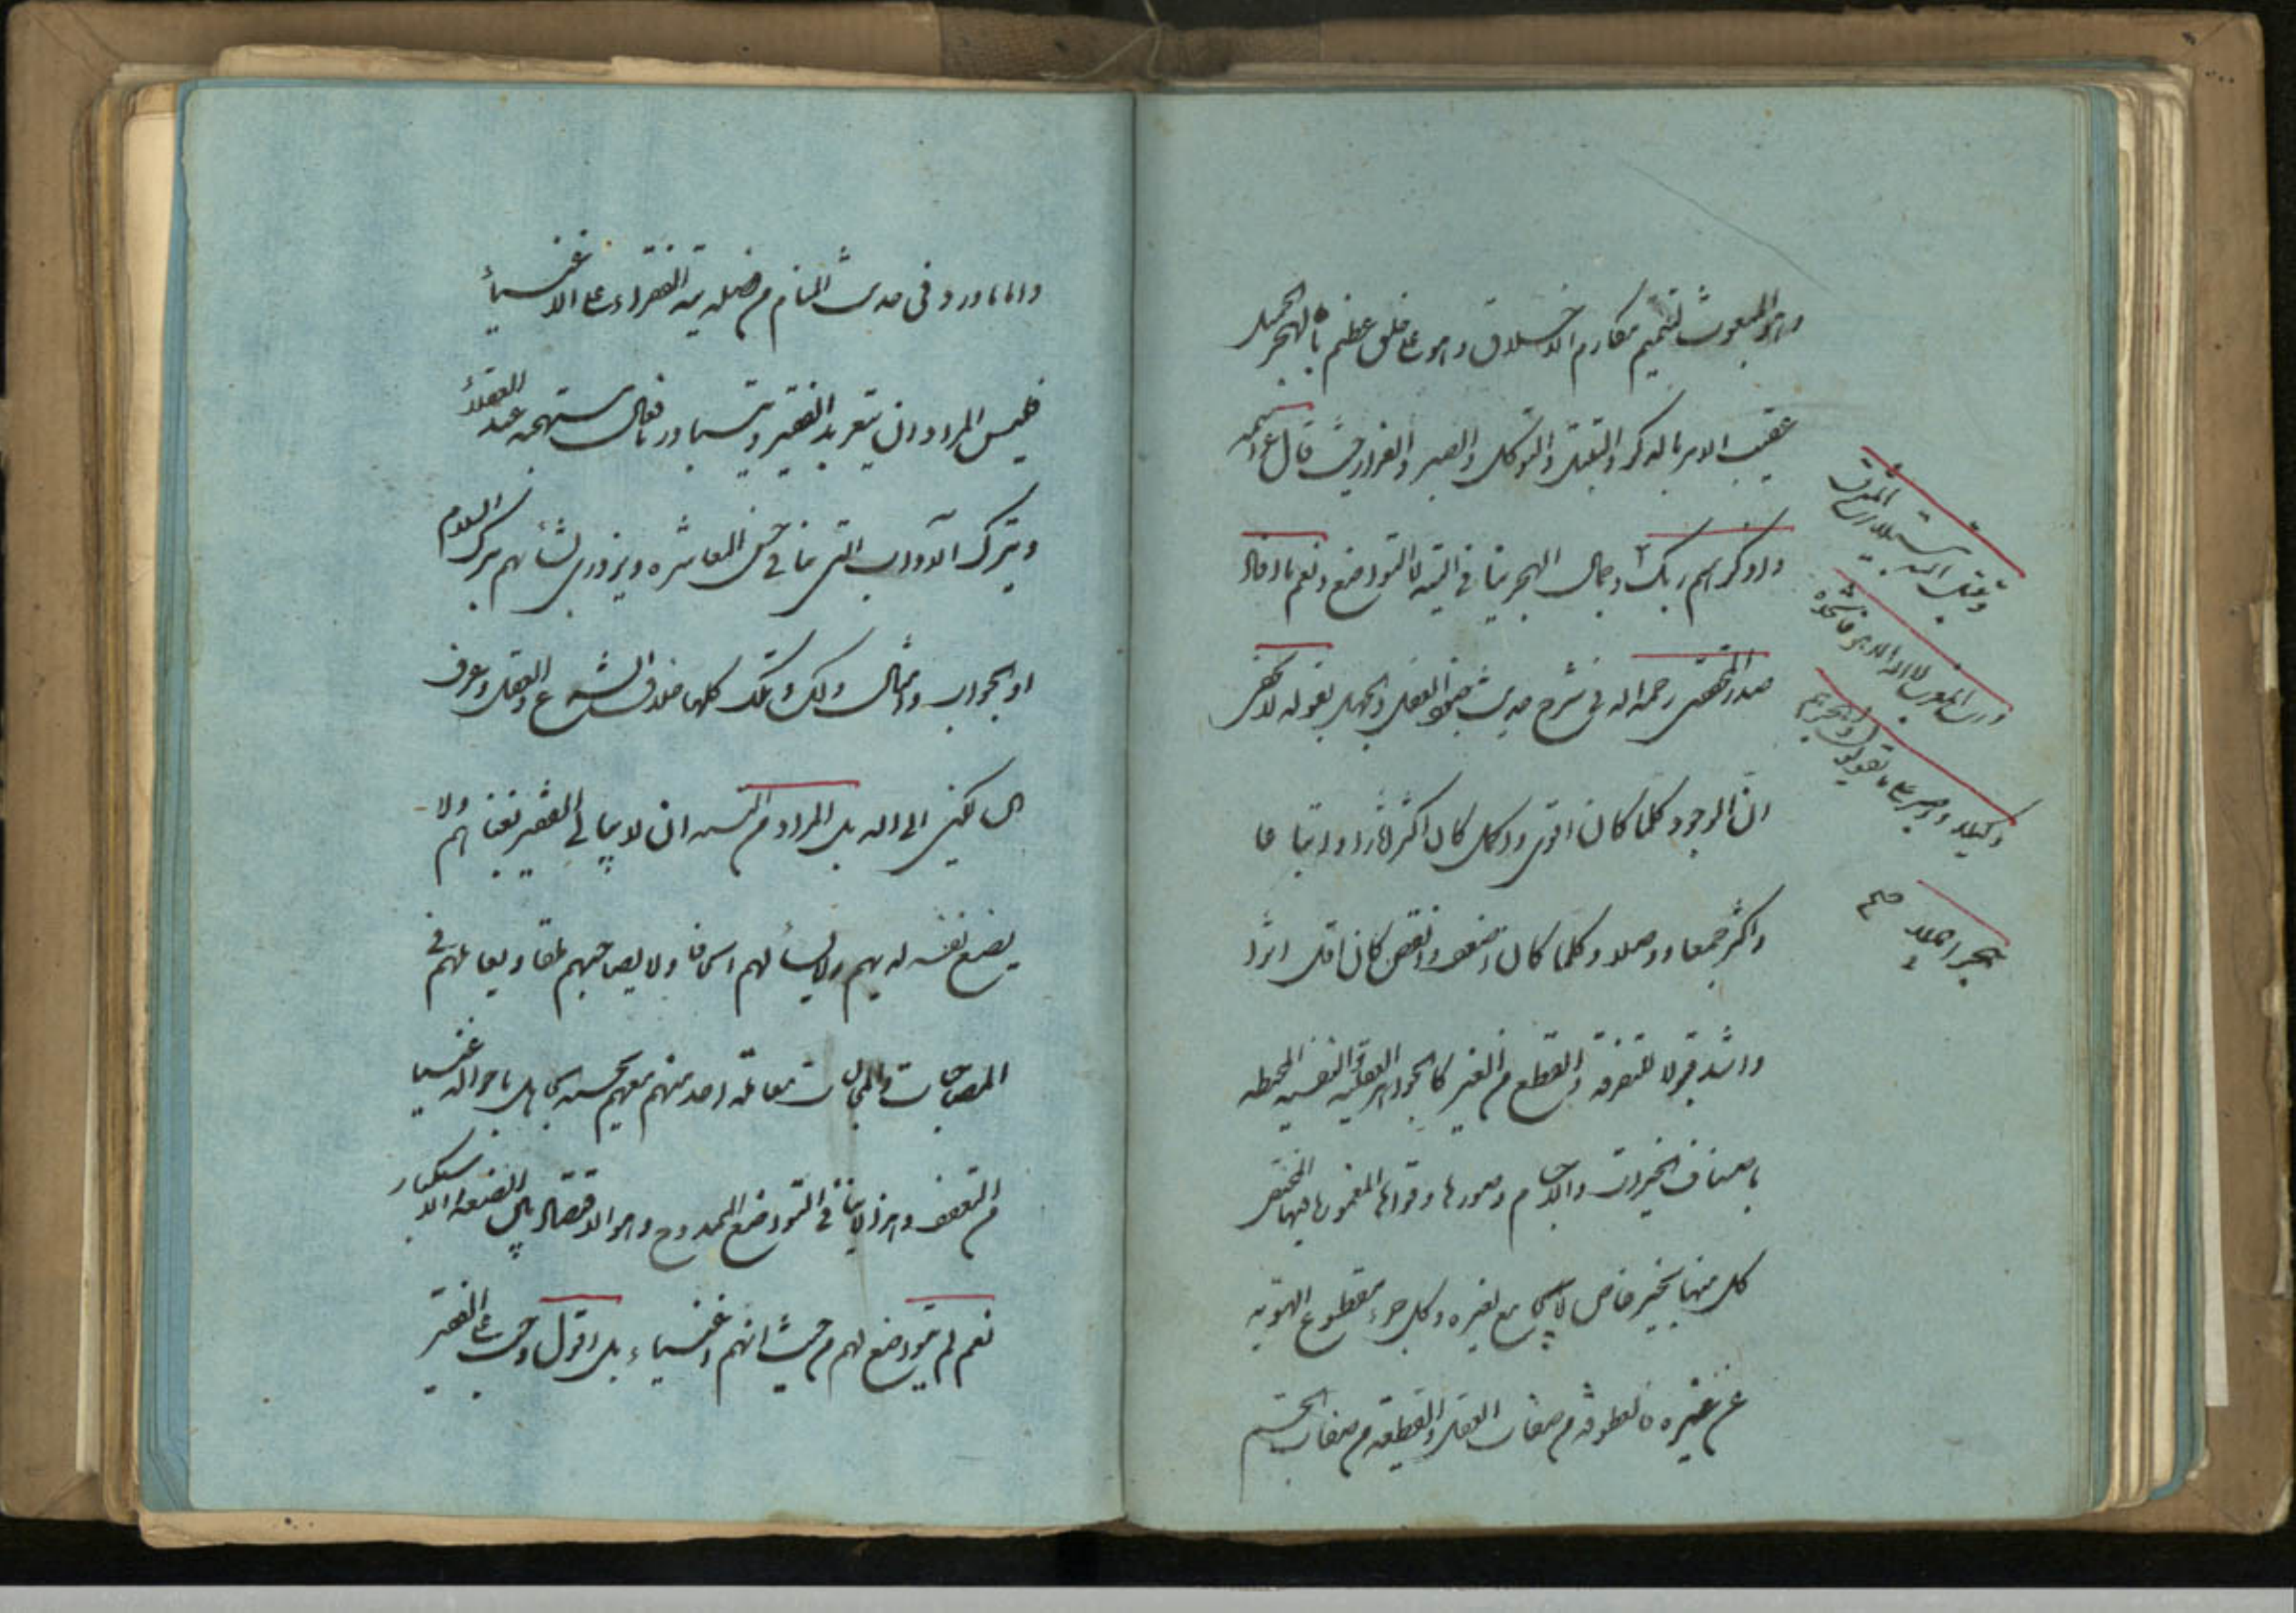 وهو المبعوث لتتميم مكارم الاخلاق وهو على خلق عظيم بالهجر الجميل
عقيب الامر بالذكر والتبتل والتوكل والصبر والفرار حيث قال عز اسمه
واذكر اسم ربك وجمال الهجر ينافي التيه لا التواضع ونعم ما افاد
صدر المحققين رحمه الله في شرح حديث جنود العقل والجهل بقوله لا يخفى
ان الوجود كلما كان اقوى واكمل كان اكثر آثارا واتباعا
واكثر جمعا ووصلا وكلما كان اضعف وانقص كان اقل اثرا
واشد قبولا للتفرقة والقطع من الغير كالجواهر العقلية والنفسية المحيطة
باصناف الخيرات والاجسام وصورها وقواها المغمورة فيها المختص
كل منها بحيز خاص لا يجامع لغيره وكل جزء مقطوع الهوية
عن غيره من صفات العقل والقطيعة من صفات الجسم
وتبتل اليه تبتيلا رب المشرق
والمغرب لا اله الا هو فاتخذه
وكيلا واصبر على ما يقولون واهجرهم
هجرا جميلا صح
واما ما ورد في حديث المنام من فضيلة تيه الفقراء على الاغنياء
فليس المراد ان يتعربد الفقير ويتسم بافعال مستهجنة عند العقلاء
ويترك الآداب التي في حسن المعاشرة ويزدري لشأنهم بترك السلام
او الجواب وامثال ذلك وتلك كلها خلاف الشرع والعقل وعرف
اهل الله بل المراد من التيه ان لا يبالي الفقير بغناهم ولا
يضع نفسه لديهم ولا يسألهم الحافا ولا يصاحبهم ملقا ويعاملهم في
المصاحبات والمجالسات معاملة احد منهم معهم يحسبه الجاهل باحواله غنيا
من التعفف وهذا لا ينافي التواضع الممدوح وهو الاقتصاد بين الضعة والاستكبار
نعم لم يتواضع لهم من حيث انهم اغنياء بل اقول وجب على الفقير